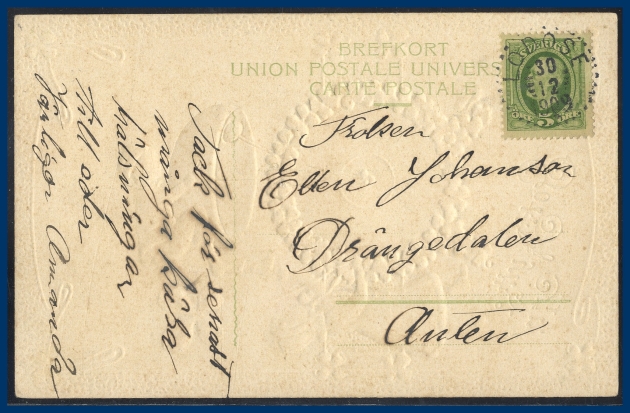 BREFKORT
UNION POSTALE UNIVERS
CARTE POSTALE
LÖDÖSE
30
12
1909
SVERIGE
5
ÖRE
ÖRE
Fröken
Ellen Johanson
Drängedalen
Anten
Tack för senast
många kära
hälsningar
till eder
Amanda